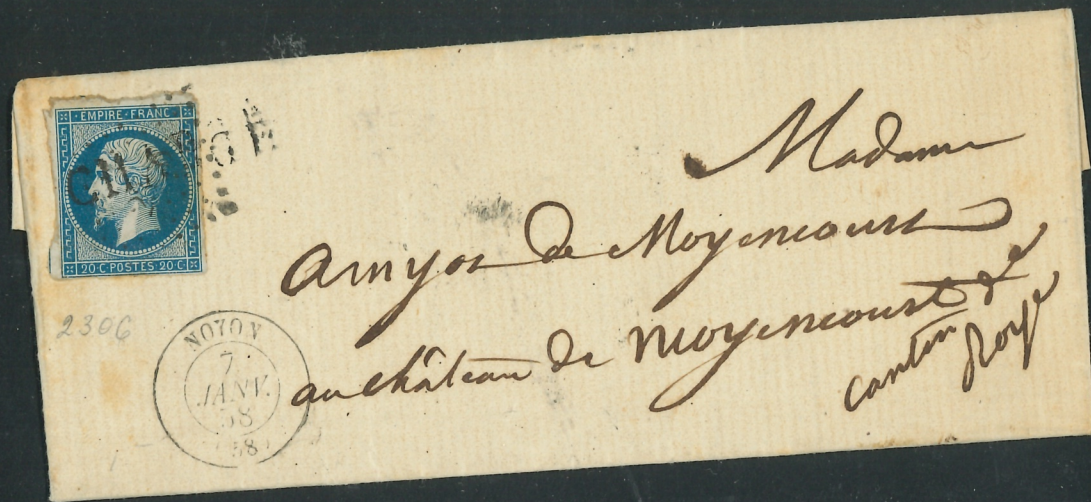 EMPIRE · FRANC
20·C POSTES 20·C
2306
NOYON
7
JANV.
58
Madame
Amyot de Moyencourt
au château de Moyencourt
canton de
Roye